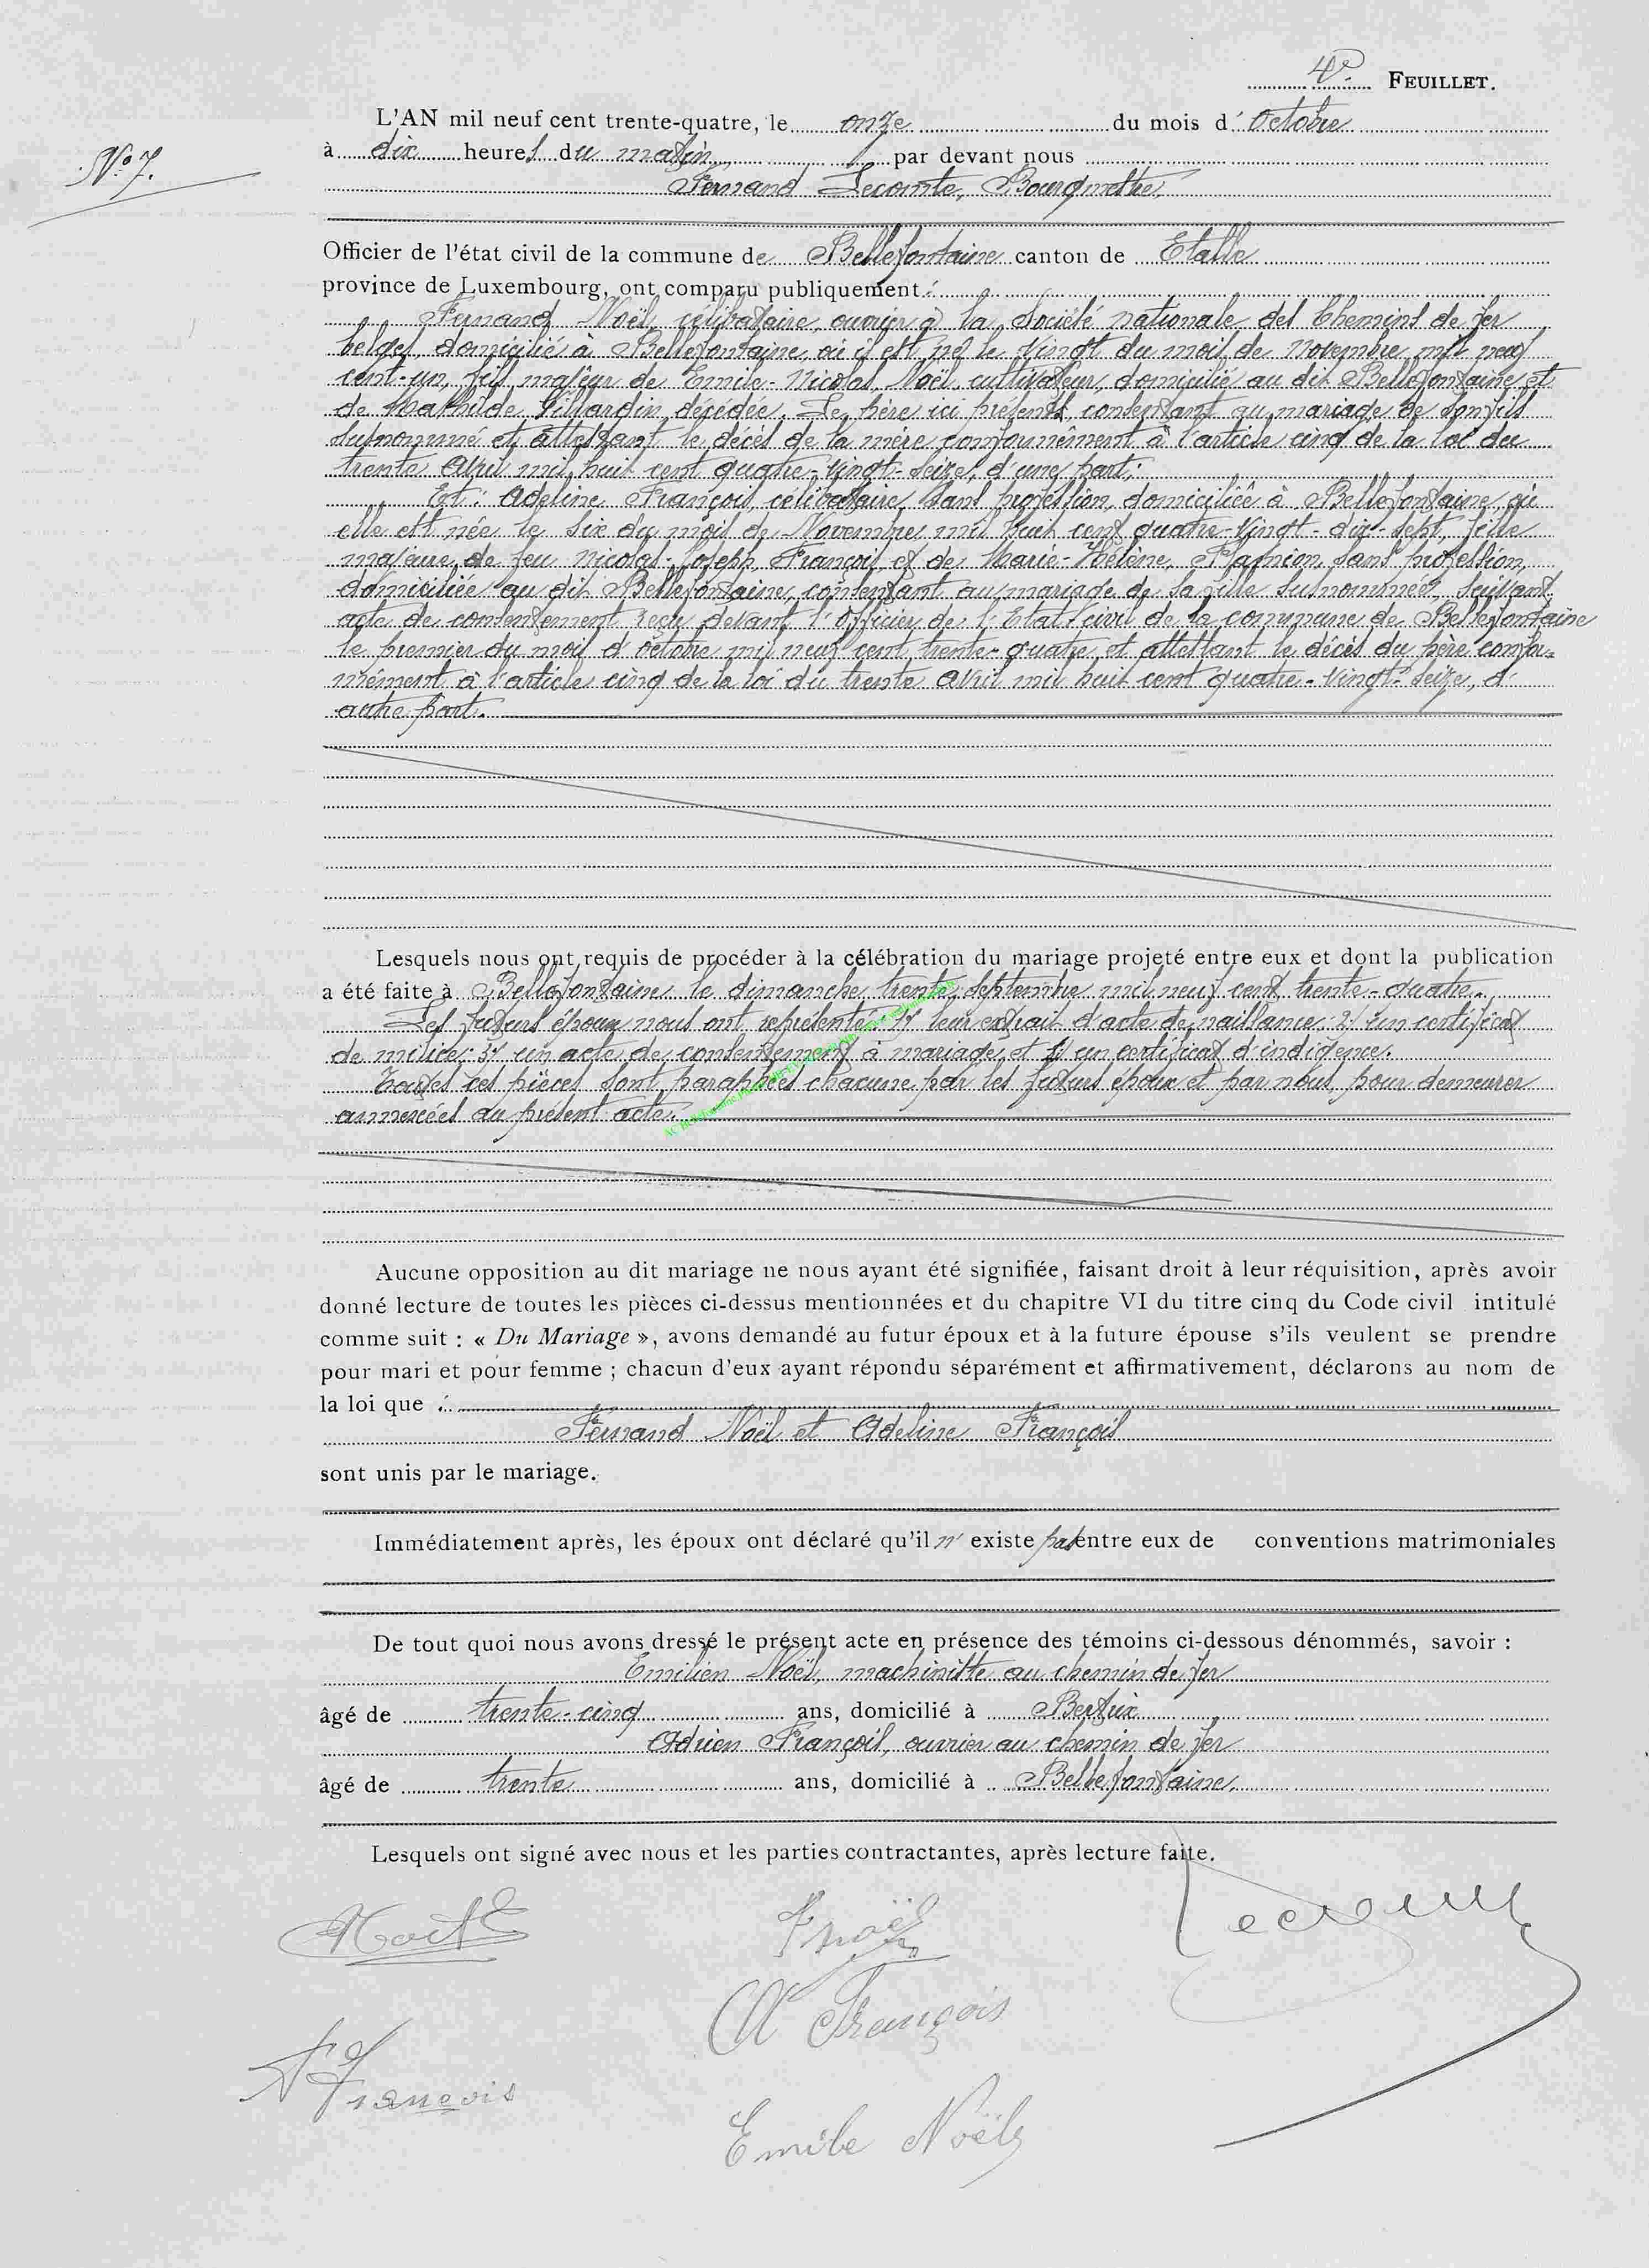 4e FEUILLET.
L'AN mil neuf cent trente-quatre, le onze du mois d' Octobre
N° 7.
à dix heures du matin, par devant nous
Fernand Lecomte, Bourgmestre,
Officier de l'état civil de la commune de Bellefontaine canton de Etalle
province de Luxembourg, ont comparu publiquement :
Fernand Noël, célibataire, ouvrier à la Société nationale des Chemins de fer
belges, domicilié à Bellefontaine, où il est né le vingt du mois de novembre mil neuf
cent-un, fils majeur de Emile-Nicolas Noël, cultivateur, domicilié au dit Bellefontaine et
de Mathilde Gillardin, décédée. Le père ici présent, consentant au mariage de son fils
susnommé et attestant le décès de la mère conformément à l'article cinq de la loi du
trente Avril mil huit cent quatre-vingt-seize, d'une part;
Et : Adeline François, célibataire, sans profession, domiciliée à Bellefontaine, où
elle est née le six du mois de Novembre mil huit cent quatre-vingt-dix-sept, fille
majeure de feu Nicolas-Joseph François et de Marie-Hélène Plamion, sans profession,
domiciliée au dit Bellefontaine, consentant au mariage de sa fille susnommée, suivant
acte de consentement reçu devant l'Officier de l'Etat civil de la commune de Bellefontaine
le premier du mois d'octobre mil neuf cent trente-quatre, et attestant le décès du père confor-
mément à l'article cinq de la loi du trente Avril mil huit cent quatre-vingt-seize, d'
autre part.
Lesquels nous ont requis de procéder à la célébration du mariage projeté entre eux et dont la publication
a été faite à Bellefontaine le dimanche trente septembre mil neuf cent trente-quatre.
Les futurs époux nous ont représenté : 1) leur extrait d'acte de naissance; 2) un certificat
de milice; 3) un acte de consentement à mariage, et 4) un certificat d'indigence.
Toutes ces pièces sont paraphées chacune par les futurs époux et par nous pour demeurer
annexées au présent acte.
Aucune opposition au dit mariage ne nous ayant été signifiée, faisant droit à leur réquisition, après avoir
donné lecture de toutes les pièces ci-dessus mentionnées et du chapitre VI du titre cinq du Code civil intitulé
comme suit : « Du Mariage », avons demandé au futur époux et à la future épouse s'ils veulent se prendre
pour mari et pour femme ; chacun d'eux ayant répondu séparément et affirmativement, déclarons au nom de
la loi que :
Fernand Noël et Adeline François
sont unis par le mariage.
Immédiatement après, les époux ont déclaré qu'il n' existe pas entre eux de conventions matrimoniales
De tout quoi nous avons dressé le présent acte en présence des témoins ci-dessous dénommés, savoir :
Emilien Noël, machiniste au chemin de fer
âgé de trente-cinq ans, domicilié à Bertrix
Adrien François, ouvrier au chemin de fer
âgé de trente ans, domicilié à Bellefontaine.
Lesquels ont signé avec nous et les parties contractantes, après lecture faite.
Noël E
F Noël
Lecomte
A François
A François
Emile Noël